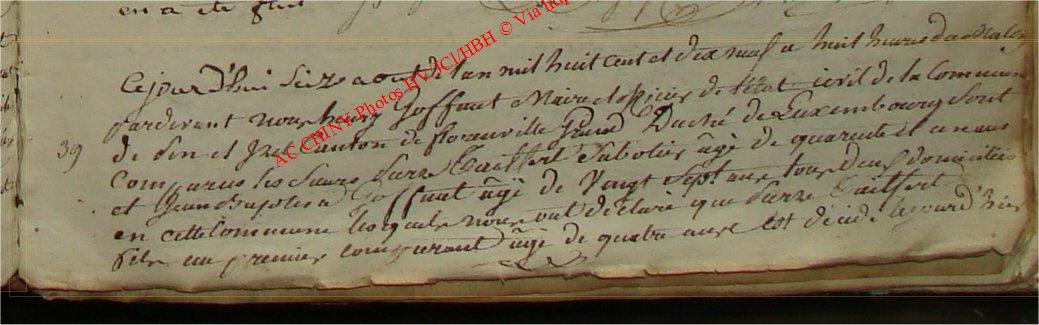 en a été fait
AC CHINY Photos HV/JCJ/HBH © Via
39
Cejourd'hui Seize aout de l'an mil huit cent et dix neuf a huit heures du Matin
pardevant nous henry Goffaut Maire officier de l'état civil de la Commune
de Canton de florenville Grand Duché de Luxembourg Sont
Comparus les Sieurs piere Taitfert Sabotier âgé de quarente et un ans
et Jean Baptiste Goffaut âgé de Vingt Sept ans tous deux domiciliés
en cette Commune lesquels nous ont déclaré que pierre Taitfert
fils au premier comparant âgé de quatre ans est décédé le jour d'hier